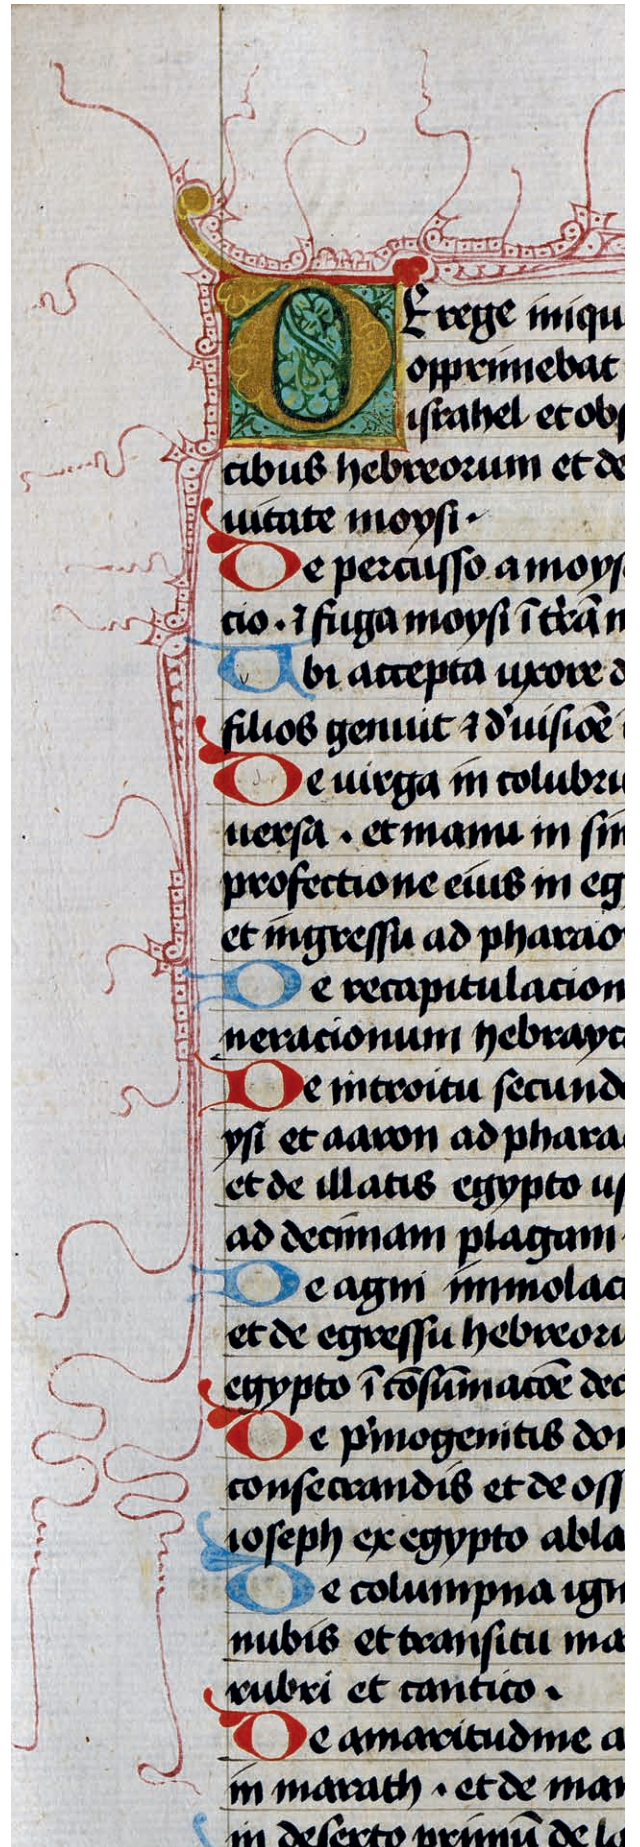 DE rege iniqu
opprimebat
israhel et obs
cibus hebreorum et de
uitate moysi.
De percusso a moys
cio. ⁊ fuga moysi ī trā m
Ubi accepta uxore d
filios genuit ⁊ d' uisiōe
De uirga in colubru
uersa. et manu in sin
profectione eius in eg
et ingressu ad pharao
De recapitulacion
neracionum hebrayc
De introitu secund
ysi et aaron ad phara
et de illatis egypto us
ad decimam plagam.
De agni immolaci
et de egressu hebreoru
egypto ī cōsūmacōe dec
De p'mogenitis dom
consecrandis et de oss
ioseph ex egypto abla
De columpna igni
nubis et transitu ma
rubri et cantico.
De amaritudine a
in marath. et de man
in deserto primū de la